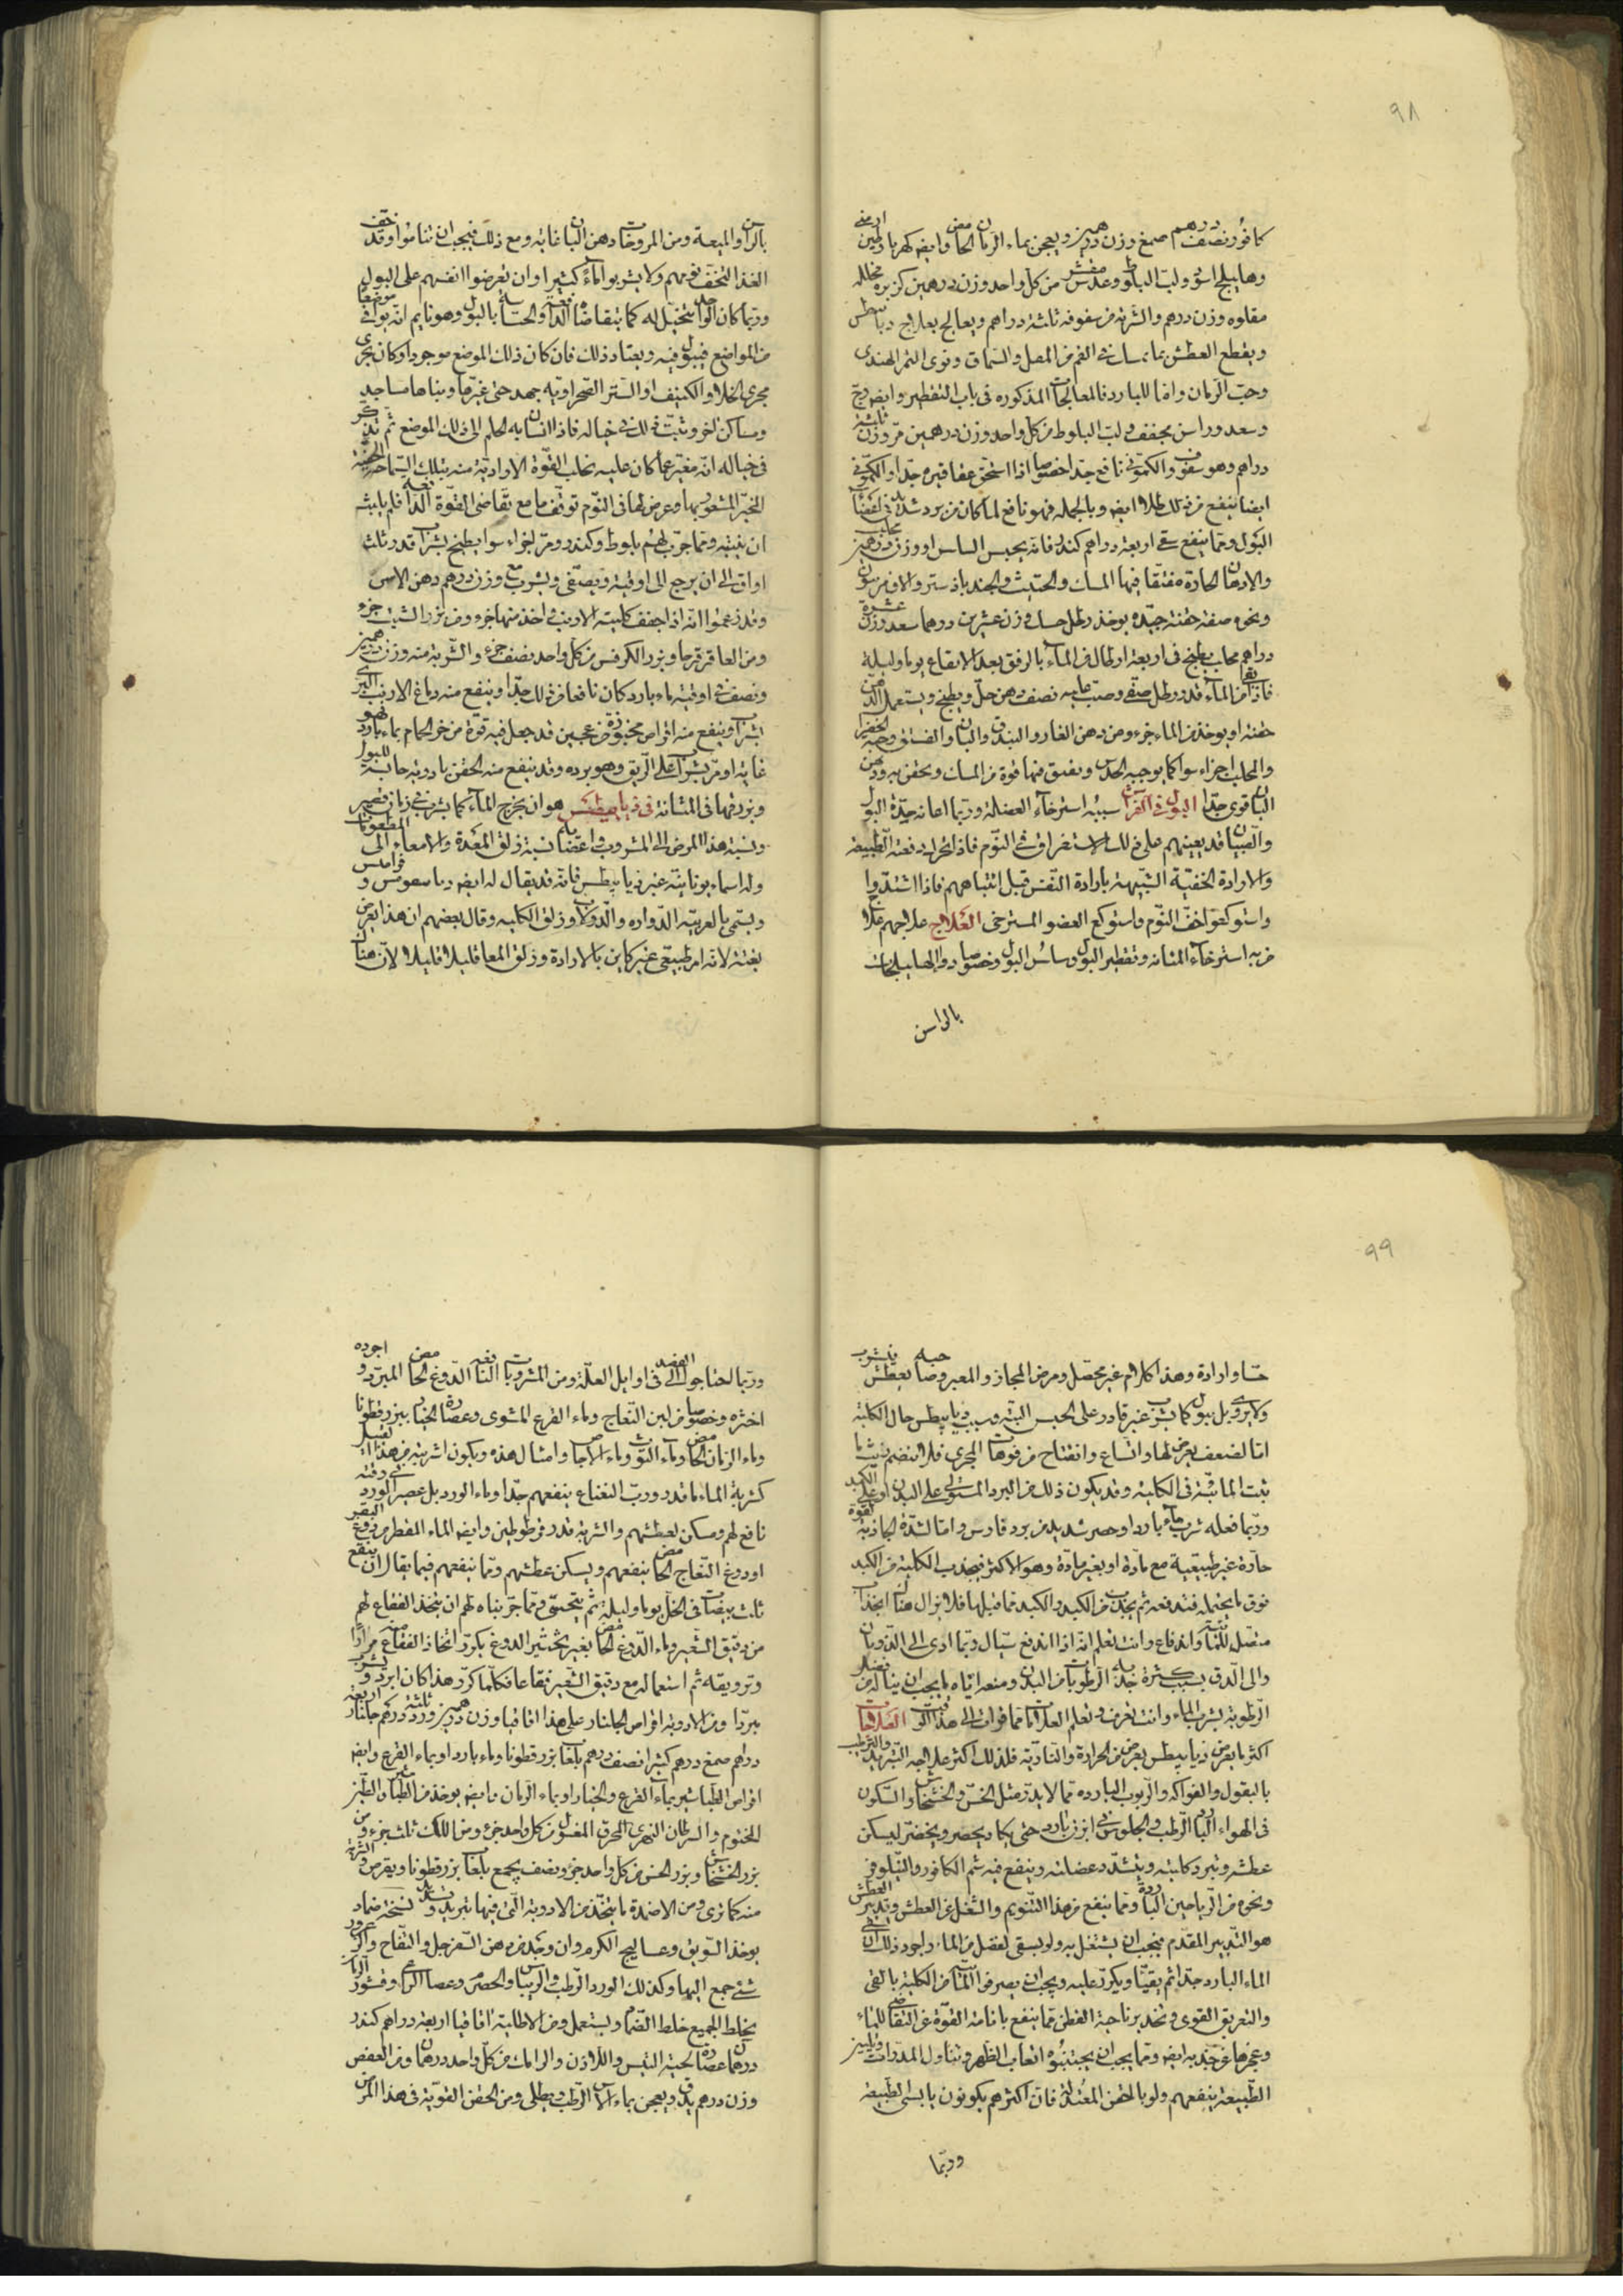 ٩٨
كافور نصف درهم صمغ وزن درهمين ويعجن بماء الرمان الحامض وايضه كهربا وطين ارمنى
وهليلج اسود ولب البلوط وعدس مقشر من كل واحد وزن درهمين كزبره مخلله
مقلوه وزن درهم والشربة من سفوفه ثلثة دراهم ويعالج بعلاج ديابيطس
ويقطع العطش بما يمسك فى الفم من المصل والسماق ونوى التمر الهندى
وحب الرمان واما للبارد فالمعالجات المذكوره فى باب التقطير وايضه وج
وسعد وراسن مجفف ولب البلوط من كل واحد وزن درهمين مر وزن ثلثة
دراهم وهو سفوف والكمونى نافع جدا خصوصا اذا استحق عقاقيره جدا والكمونى
ايضا ينفع من ذلك طلاء ايضه وبالجمله فهو نافع لما كان من برد شديد فى اعضاء
البول ومما ينفع سقى اربعة دراهم كندر فانه يحبس السلس او وزن درهمين محلب
والادهان الحارة مفتقا فيها المسك والحلتيث والجندبادستر والافربيون
ونحوه صفة حقنة جيده يوخذ رطل حسك وزن عشرين درهما سعد وزن عشرة
دراهم محلب يطبخ فى اربعة ارطال من الماء بالرفق بعد الانقاع يوما وليلة
فاذا بقى من الماء قدر رطل صفى وصب عليه نصفه دهن حل ويطبخ ويستعمل الدهن
حقنة او يوخذ من الماء جزء ومن دهن الغار والبندق والبان والفستق وحبة الخضرا
والمحلب اجزاء سوا كما يوجبه الحدس ويفتق فيها قوة من المسك ويحقن به ودهن
البان قوى جدا البول فى الفراش سببه استرخاء العضلة وربما اعانه حدة البول
والصبيان قد يعينهم على ذلك الاستغراق فى النوم فاذا تحرك دفعته الطبيعه
والارادة الخفية الشبيهة بارادة التنفس قبل انتباههم فاذا اشتدوا
واستوكعوا خف النوم واستوكع العضو المسترخى العلاج علاجهم علاج
من به استرخاء المثانه وتقطير البول وسلس البول وخصوصا دوا الهليلجات
بالراسن
بالراسن والميعه ومن المروخات دهن البان غايه ومع ذلك فيجب ان يناموا وقد خفف
الغذا لتخف نومهم ولا يشربوا ماء كثيرا وان يعرضوا انفسهم على البول
وربما كان الواحد يتخيل له كما يتقاضاه الدافعة والحساسة بالبول وهو نايم انه يوافى موضعا
من المواضع فيبول فيه ويعتاد ذلك فان كان ذلك الموضع موجودا وكان يجرى
مجرى الخلا والكنيف او الستر الصحراويه جهد حتى غيرها وبناها مساجد
ومساكن اخر وثبت ذلك فى خياله فاذا انساب به الحلم الى ذلك الموضع ثم تذكر
فى خياله انه مغير عما كان عليه تخلت القوة الاراديه منه بتلك السماحة الخفية
الغير المشعور بها وعرض لها فى النوم توقف ما مع تقاضى القوة الدافعة فلم يلبث
ان ينتبه ومما جرب لهم بلوط وكندر ومر اجزاء سوا يطبخ بشراب قدر ثلث
اواق الى ان يرجع الى اوقية ويصفى ويشرب مع وزن درهم دهن الاس
وقد زعموا انه اذا جفف كلية الارنب فى اخذ منها جزء ومن بزر الشبت جزء
ومن العاقر قرحا وبزر الكرفس من كل واحد نصف جزء والشربة منه وزن درهمين
ونصف فى اوقية ماء بارد كان نافعا من ذلك جدا وينفع منه دماغ الارنب البرى
بشراب وينفع منه اقراص مخبوزة من عجين قد جعل فيه قوة من خرء الحمام بماء بارد فهو
غاية او مر بشراب على الريق وهو برده وقد ينفع منه الحقن بادوية حابسة للبول
وبزرقها فى المثانة فى ذيابيطس هو ان يخرج الماء كما يشرب فى زمان قصير
ونسبة هذا المرض الى المشروب والى اعضائه نسبة زلق المعدة والامعاء الى المطعومات
وله اسماء يونانية غير ذيابيطس فانه قد يقال له ايضه دياسقومس وقرامس
ويسمى بالعربيه الدواره والدولاب وزلق الكليه وقال بعضهم ان هذا يعرض
بغتة لانه امر طبيعى غير كاين بالارادة وزلق المعا قليلا قليلا لان هناك
٩٩
حسا وارادة وهذا كلام غير محصل ومرض المجاز والمعبر وصاحبه يعطش فيشرب
ولا يروى بل يبول كما يشرب غير قادر على الحبس البته وسبب ديابيطس حال الكلية
اما لضعف يعرض لها واتساع وانفتاح من فوهات المجرى فلا ينضم ريث ما
تثبت المائية فى الكلية وقد يكون ذلك من البرد المستولى على البدن او على الكبد
وربما فعله شرب ماء بارد او حصر شديد من برد قارس واما لشدة الجاذبة القوة
حارة غير طبيعية مع مادة او بغير مادة وهو الاكثر فيجذب الكلية من الكبد
فوق ما يحتمله فتدفعه ثم يجذب من الكبد والكبد مما قبلها فلا يزال هناك انجذاب
متصل للماء واندفاع وانت تعلم انه اذا اندفع سيال وتما ادى الى الذوبان
والى الدق بسبب كثرة جذبه الرطوبات من البدن ومنعه اياه ما يجب ان يناله من فضل
الرطوبة بشرب الماء وانت تعرف وتعلم العلامات مما قرات الى هذا الوقت العلاجات
اكثر ما يعرض ذيابيطس يعرض من الحرارة والنارية فلذلك اكثر علاجه التبريد والترطيب
بالبقول والفواكه والربوب البارده مما لا يدر مثل الخس والخشخاش والسكون
فى الهواء البارد الرطب والجلوس فى ابزن بارد حتى يكاد يحصر ويخضر ليسكن
عطشه وتبرد كليته ويشتد عضلته وينفع فيه شم الكافور والنيلوفر
ونحوه من الرياحين الباردة ومما ينفع من هذا التنويم والشغل عن العطش وتدبير العطش
هو التدبير المقدم فيجب ان يشتغل به ولو بسقى افضل من الماء واجود ذلك ان يسقى
الماء البارد جدا ثم يقيا ويكرر عليه ويجب ان يصرف الماء من الكلية بالقى
والتعريق القوى وتخدير ناحية القطن مما ينفع بانامة القوة عن التقاضى للماء
وعجزها عن جذبه ايضه ومما يجب ان يجتنبوه اتعاب الظهر وتناول المدرات وتليين
الطبيعة ينفعهم ولو بالحقن المعتدلة فان اكثرهم يكونون يابسى الطبيعة
وربما
وربما احتاجوا الى الفصد فى اوايل العلة ومن المشروبات النافعة الدوغ الحامض المبرد واجوده
اخثره وخصوصا من لبن النعاج وماء القرع المشوى وعصارة الخيار ببزرقطونا
وماء الرمان الحامض وماء التوت وماء الاجاص وامثال هذه ويكون اشربته من هذا القبيل
كشربة الماء ما قدر ورب النعناع ينفعهم جدا وماء الورد بل عصير الورد فى وقته
نافع لهم ومسكن لعطشهم والشربة قدر قوطولين وايضه الماء المقطر من دوغ البقر
او دوغ النعاج الحامض ينفعهم ويسكن عطشهم ومما ينفعهم فيما يقال ان ينقع
ثلث بيضات فى الخل يوما وليلة ثم يتحسى ومما جربناه لهم ان يتخذ الفقاع لهم
من دقيق الشعير وماء الدوغ الحامض بغير تخثير الدوغ بكرر اتخاذ الفقاع منه مرارا
وترويقه ثم استعماله مع دقيق الشعير فقاعا فكلما كرر هذا كان ابرد ويشرب
مبردا ومن الادوية اقراص الجلنار على هذا اقاقيا وزن درهمين ورد ثلثة دراهم جلنار اربعة
دراهم صمغ درهم كثيرا نصف درهم بلعاب بزرقطونا وماء بارد او بماء القرع وايضه
اقراص الطباشير بماء القرع والخيار او بماء الرمان وايضه يوخذ من الطباشير والطين
المختوم والسرطان النهرى المحرق المغسول من كل واحد جزء ومن اللك ثلث جزء ومن
بزر الخشخاش وبزر الخس من كل واحد جزء ونصف يجمع بلعاب بزرقطونا ويقرص والشربة
منه كما ترى ومن الاضمدة ما يتخذ من الادوية التى فيها تبريد وتشديد نسخة ضماد
يوخذ السويق وعساليج الكرم وان وجد من دهن السفرجل والتفاح والزعرور
شئ جمع اليها وكذلك الورد الرطب والريباس والحصرم وعصا الراعى وقشور الرمان
يخلط الجميع خلط الضماد ويستعمل ومن الاطلية اقاقيا اربعة دراهم كندر
درهمان عصارة لحية التيس واللاذن والرامك من كل واحد درهمان ومن العفص
وزن درهم يدق ويعجن بماء الاس الرطب ويطلى ومن الحقن القوية فى هذا المرض